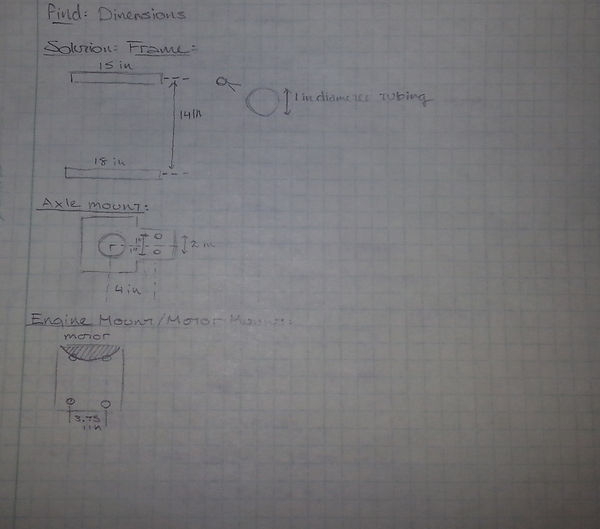 Find: Dimensions
Solution: Frame:
15 in
1 in diameter tubing
14 in
18 in
Axle mount:
1"
1"
2 in
4 in
Engine Mount/Motor Mount:
motor
3.75